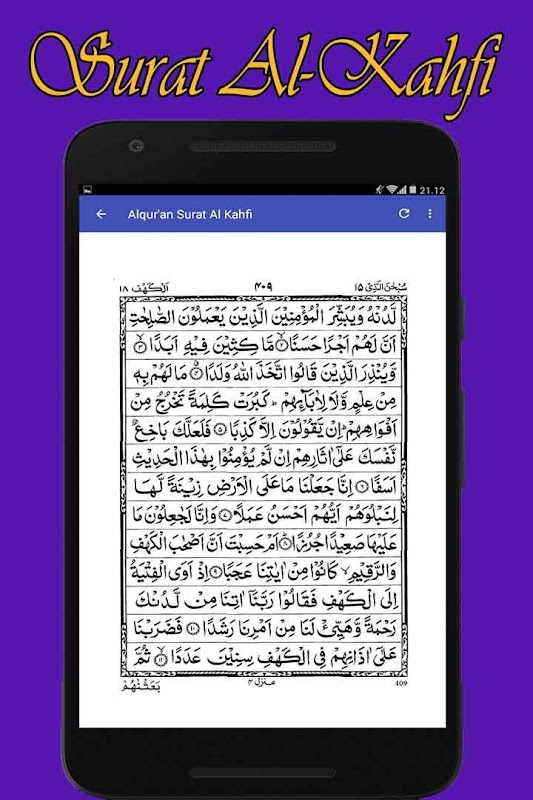 Surat Al-Kahfi
21.12
Alqur'an Surat Al Kahfi
سُبۡحٰنَ الَّذِیۡ ۱۵ ۴۰۹ اَلۡکَهۡف ۱۸
لَّدُنۡهُ وَیُبَشِّرَ الۡمُؤۡمِنِیۡنَ الَّذِیۡنَ یَعۡمَلُوۡنَ الصّٰلِحٰتِ
اَنَّ لَهُمۡ اَجۡرًا حَسَنًا ﴿۲﴾ مَّا کِثِیۡنَ فِیۡهِ اَبَدًا ﴿۳﴾
وَّیُنۡذِرَ الَّذِیۡنَ قَالُوا اتَّخَذَ اللّٰهُ وَلَدًا ﴿۴﴾ مَا لَهُمۡ بِهٖ
مِنۡ عِلۡمٍ وَّلَا لِاٰبَآئِهِمۡ ؕ کَبُرَتۡ کَلِمَةً تَخۡرُجُ مِنۡ
اَفۡوَاهِهِمۡ ؕ اِنۡ یَّقُوۡلُوۡنَ اِلَّا کَذِبًا ﴿۵﴾ فَلَعَلَّکَ بَاخِعٌ
نَّفۡسَکَ عَلٰۤی اٰثَارِهِمۡ اِنۡ لَّمۡ یُؤۡمِنُوۡا بِهٰذَا الۡحَدِیۡثِ
اَسَفًا ﴿۶﴾ اِنَّا جَعَلۡنَا مَا عَلَی الۡاَرۡضِ زِیۡنَةً لَّهَا
لِنَبۡلُوَهُمۡ اَیُّهُمۡ اَحۡسَنُ عَمَلًا ﴿۷﴾ وَ اِنَّا لَجٰعِلُوۡنَ مَا
عَلَیۡهَا صَعِیۡدًا جُرُزًا ﴿۸﴾ اَمۡ حَسِبۡتَ اَنَّ اَصۡحٰبَ الۡکَهۡفِ
وَ الرَّقِیۡمِ ۙ کَانُوۡا مِنۡ اٰیٰتِنَا عَجَبًا ﴿۹﴾ اِذۡ اَوَی الۡفِتۡیَةُ
اِلَی الۡکَهۡفِ فَقَالُوۡا رَبَّنَاۤ اٰتِنَا مِنۡ لَّدُنۡکَ
رَحۡمَةً وَّهَیِّئۡ لَنَا مِنۡ اَمۡرِنَا رَشَدًا ﴿۱۰﴾ فَضَرَبۡنَا
عَلٰۤی اٰذَانِهِمۡ فِی الۡکَهۡفِ سِنِیۡنَ عَدَدًا ﴿۱۱﴾ ثُمَّ
409 منزل ۴ بَعَثۡنٰهُمۡ